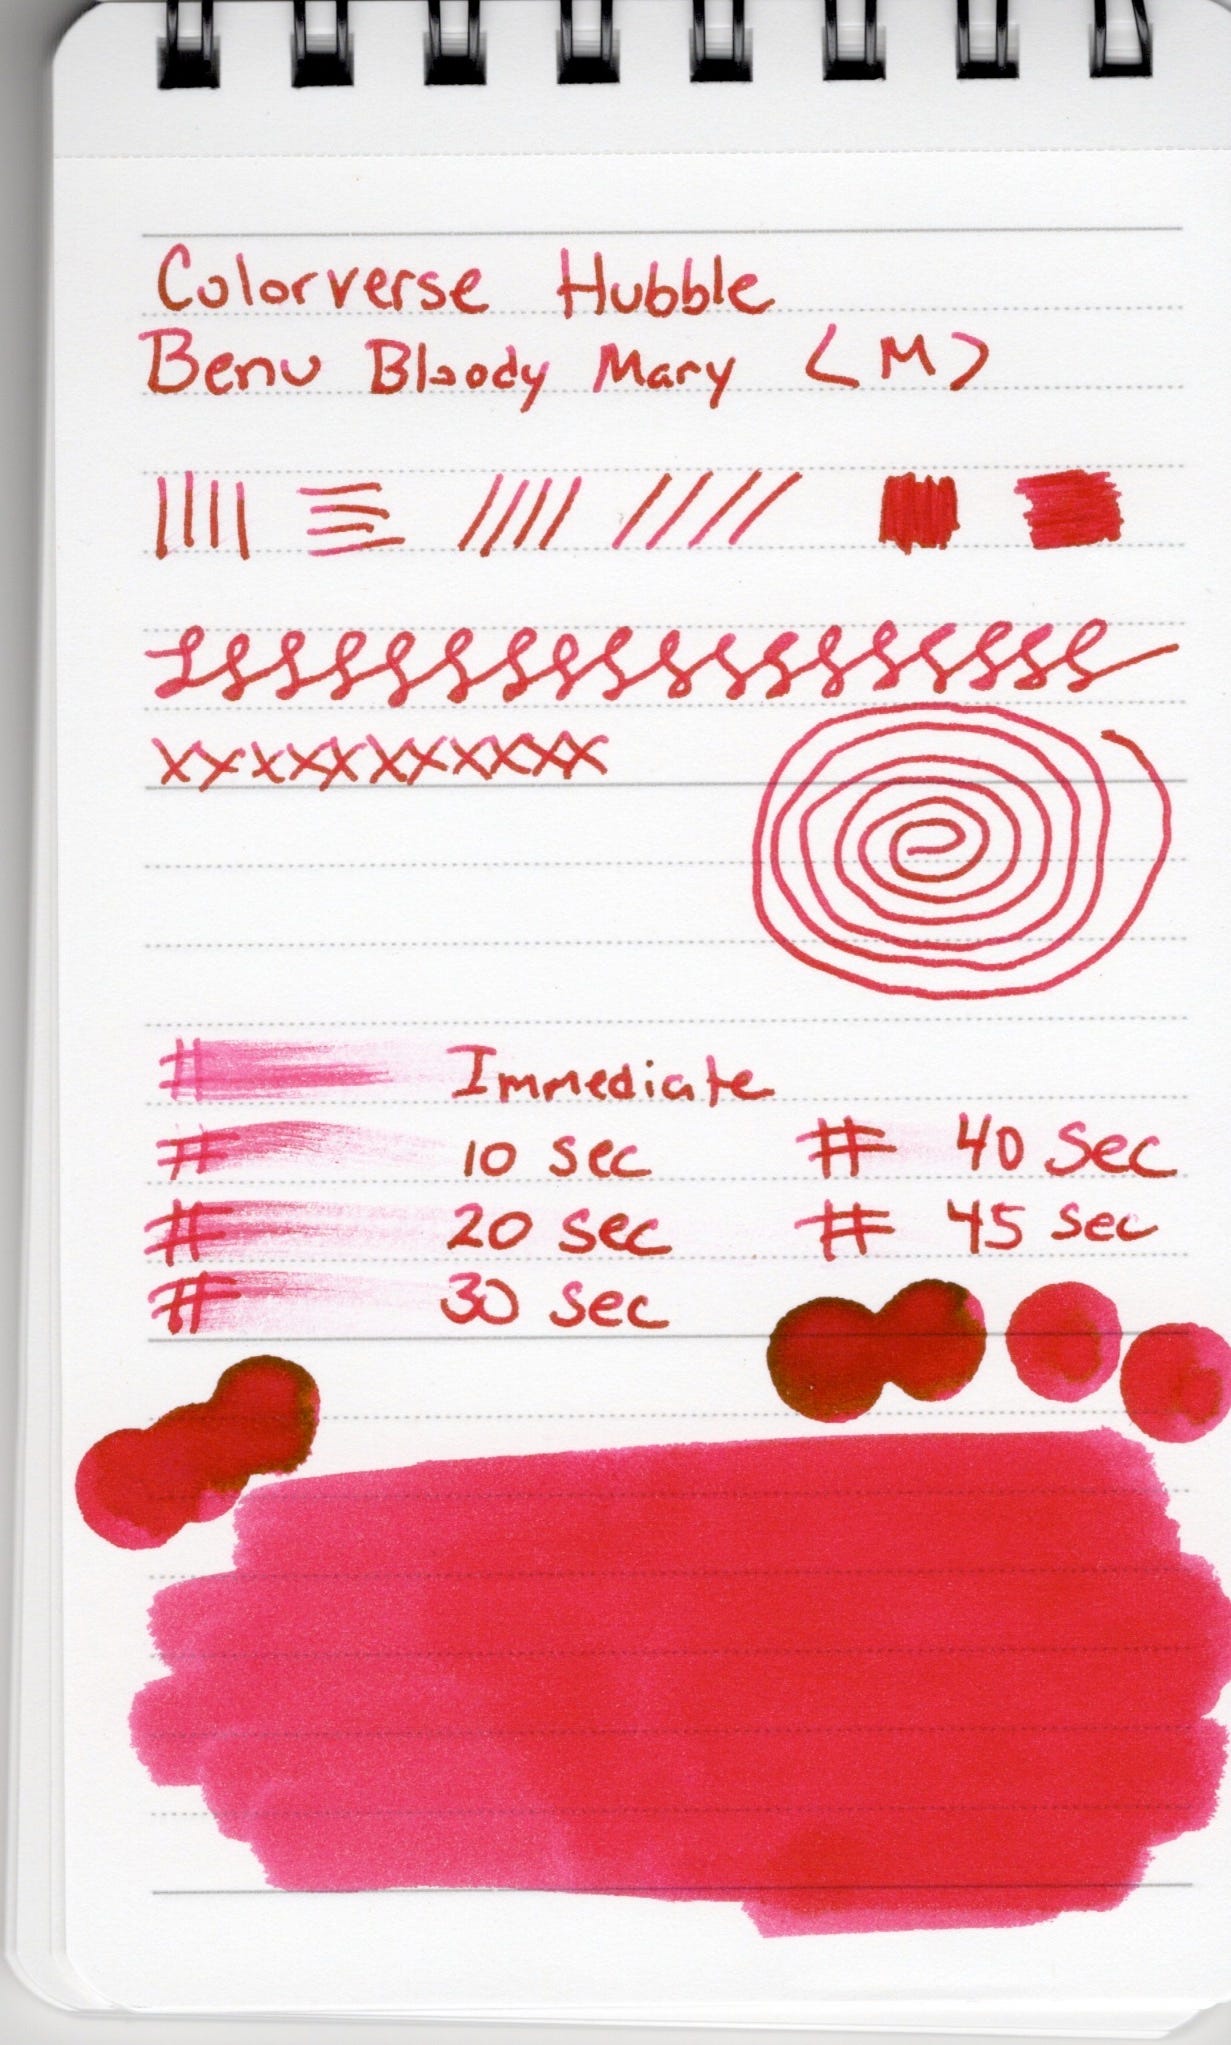 Colorverse Hubble
Benu Bloody Mary <M>
xxxxxxxxxxx
# Immediate
# 10 sec # 40 sec
# 20 sec # 45 sec
# 30 sec